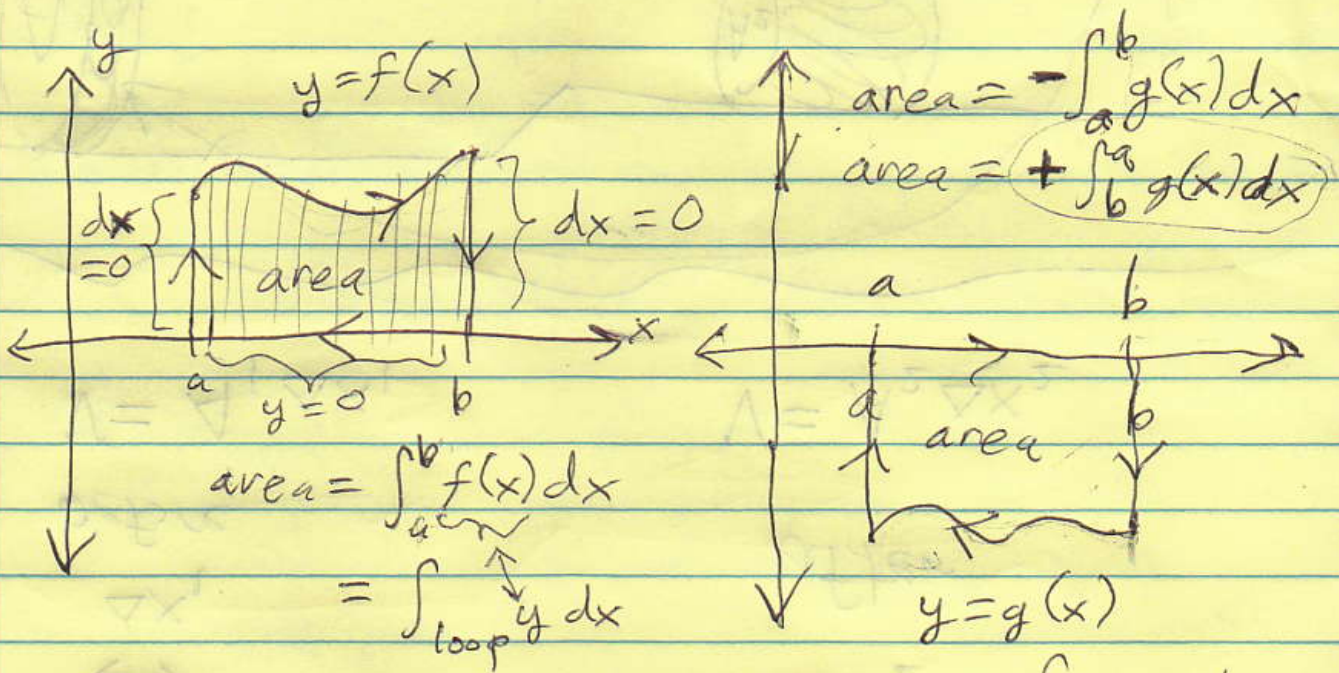 y
y = f(x)
dx
=0
area
dx = 0
x
a
y = 0
b
area = ∫_a^b f(x) dx
= ∫_loop y dx
area = -∫_a^b g(x) dx
area = + ∫_b^a g(x) dx
a
b
a
b
area
y = g(x)